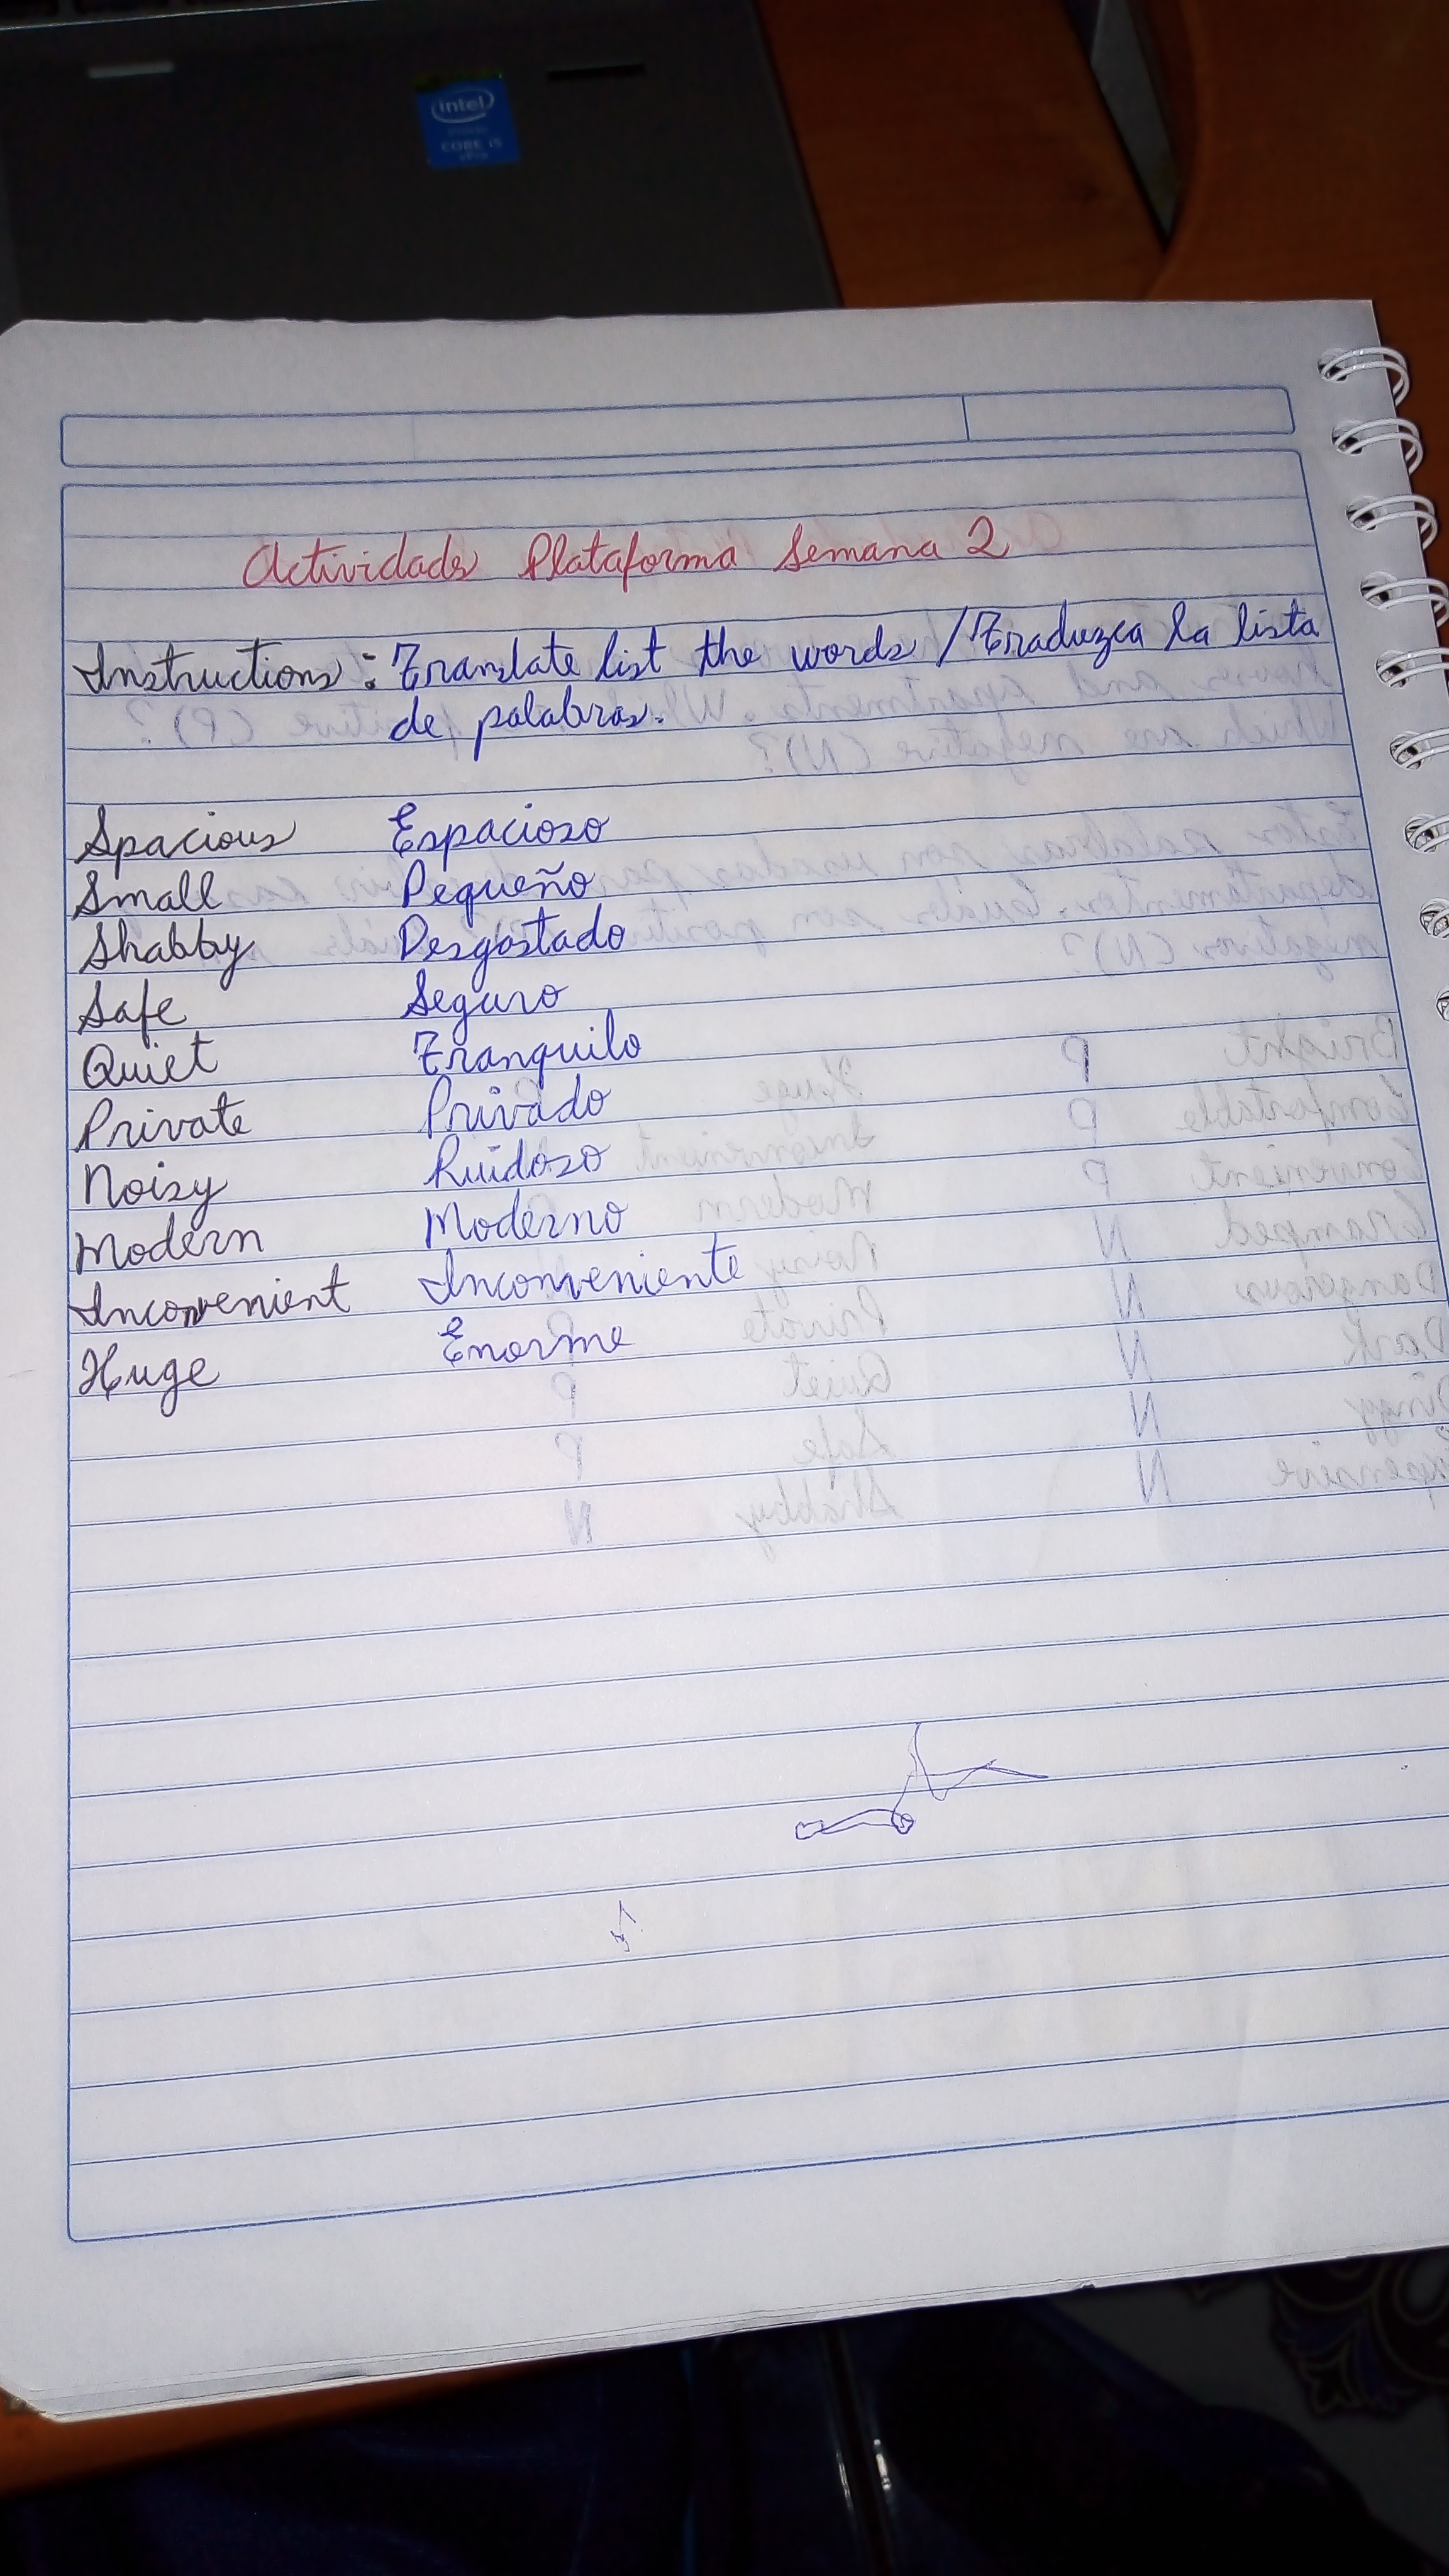 intel
inside
CORE i5
vPro
Actividades Plataforma Semana 2
Instructions: Translate list the words / Traduzca la lista
de palabras.
Spacious Espacioso
Small Pequeño
Shabby Desgastado
Safe Seguro
Quiet Tranquilo
Private Privado
Noisy Ruidoso
Modern Moderno
Inconvenient Inconveniente
Huge Enorme